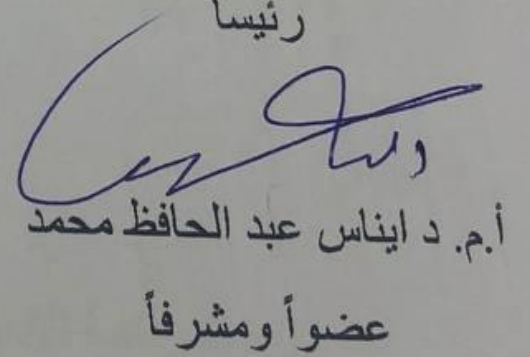 رئيسا
أ.م. د ايناس عبد الحافظ محمد
عضواً ومشرفاً